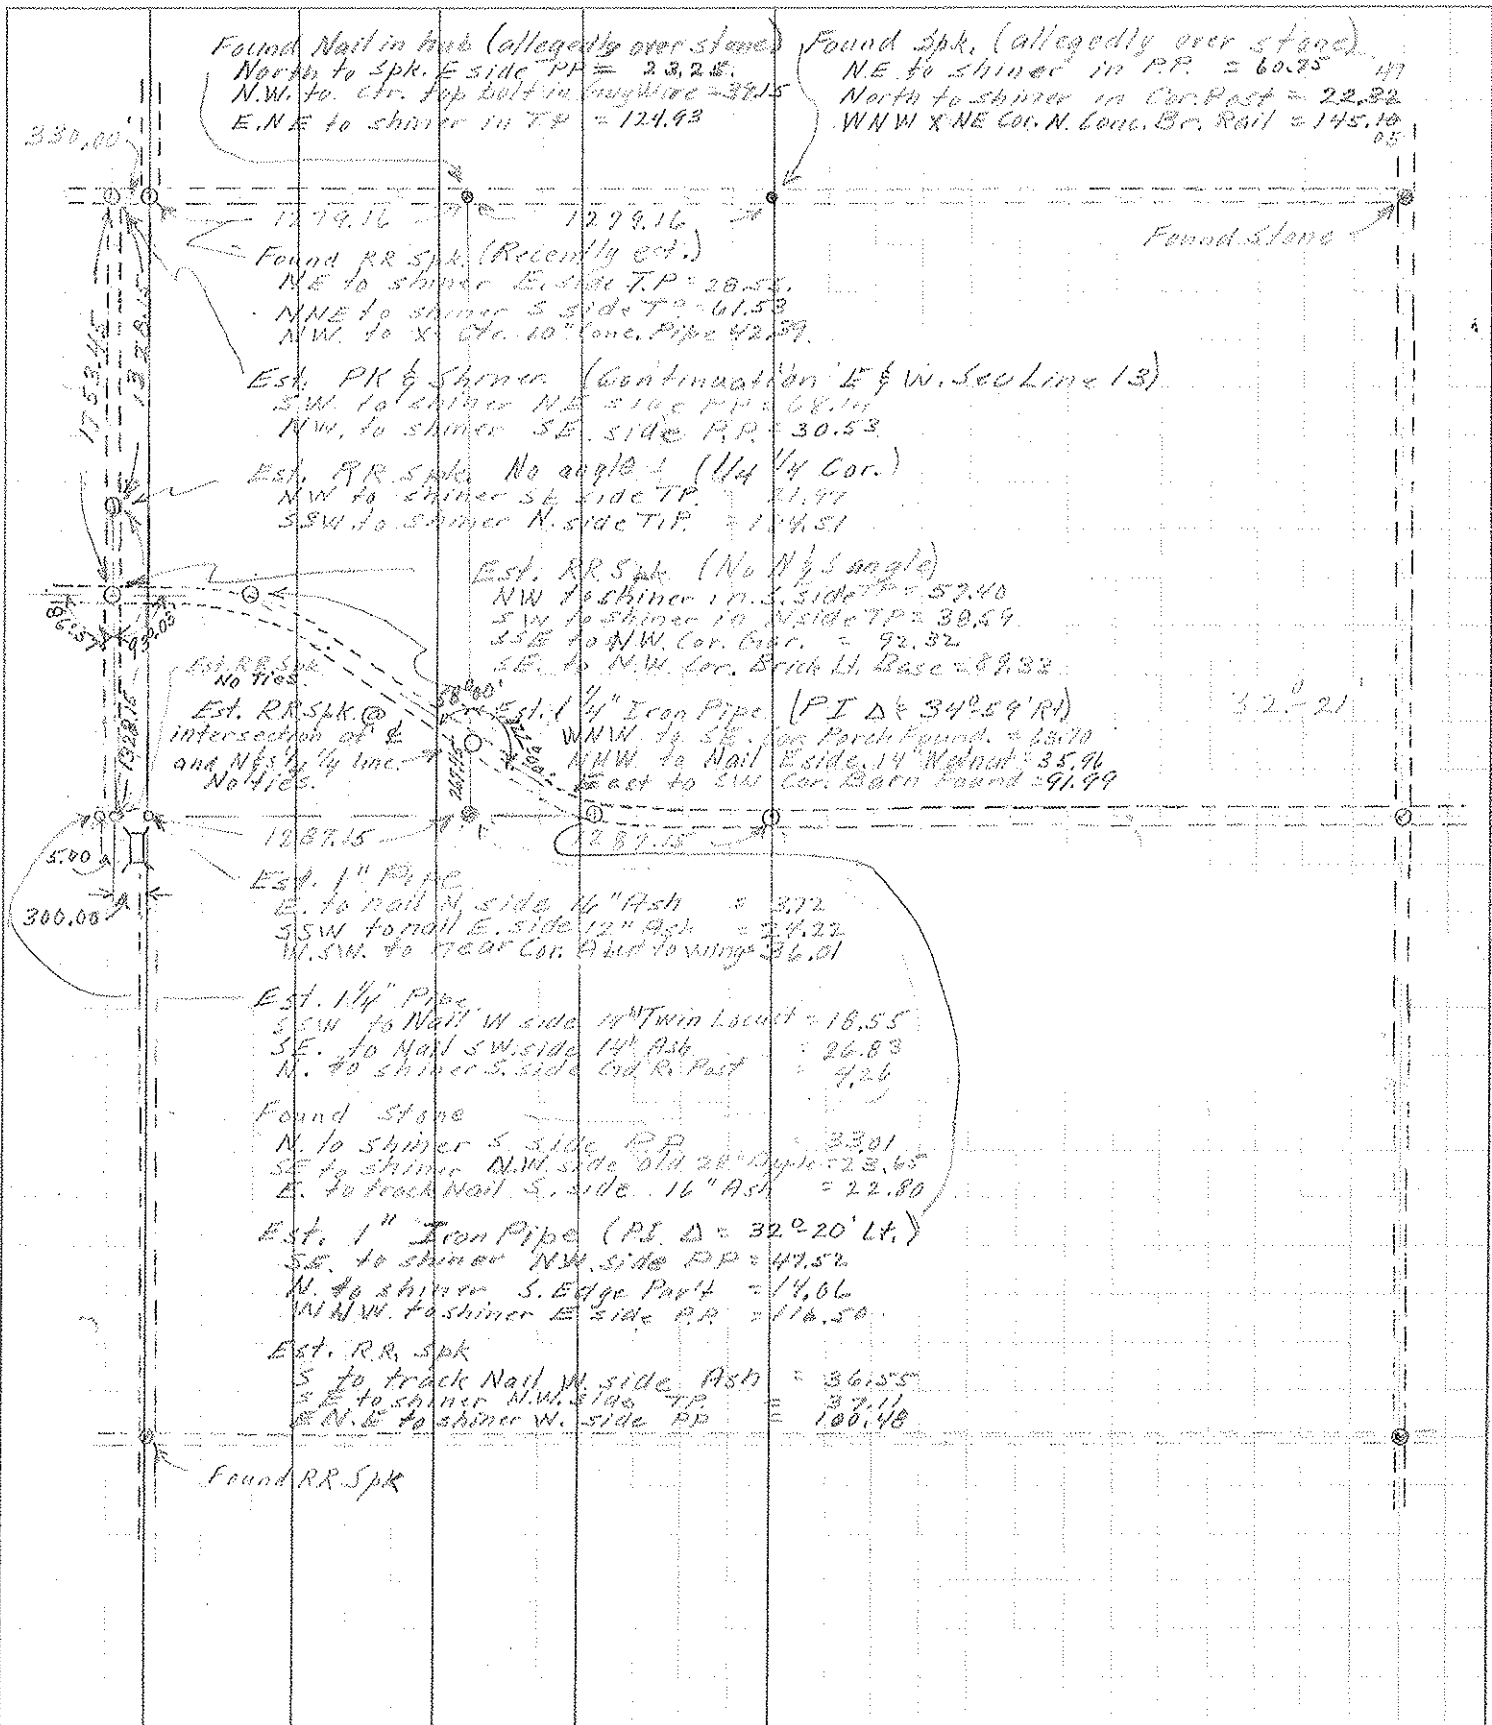 Found Nail in hub (allegedly over stone)
North to Spk. E side PP = 23.25
N.W. to Ctr. top bolt in Guy Wire = 39.15
E.N.E to shiner in T.P. = 124.93
Found Spk. (allegedly over stone)
N.E. to shiner in P.P. = 60.75
North to shiner in Cor. Post = 22.32
WNW X NE Cor. N. Conc. Br. Rail = 145.10
05
330.00'
1279.16
1279.16
Found Stone
Found RR Spk. (Recently est.)
NE to shiner E. side T.P = 28.55
NNE to shiner S side TP = 61.53
N.W. to X Ctr. 60" Conc. Pipe 42.39
1753.45
1328.15
Est. PK & Shiner (Continuation E & W. Sec Line 13)
S.W. to shiner NE side PP = 68.14
N.W. to shiner SE. side P.P. = 30.53
Est. RR Spk. No angle (1/4 1/4 Cor.)
NW to shiner SE side TP. = 21.97
SSW. to shiner N. side T.P. = 124.51
Est. RR Spk (No N & S angle)
NW to shiner in S. side TP = 57.40
SW to shiner in N side TP = 38.59
SSE to N.W. Cor. Gar. = 92.32
SE. to N.W. Cor. Brick Lt. Base = 89.33
86°57'
93°03'
Est. RR Spk
No Ties.
58°00'
Est. RR Spk. @
intersection of ℄
and N & S 1/4 1/4 line.
No ties.
1328.15
Est. 1 1/4" Iron Pipe (PI Δ = 34°59' Rt)
WNW. to SE. Cor. Porch Found. = 63.70
NNW. to Nail E side 14" Walnut = 35.96
East to SW Cor. Barn Found = 91.99
32°-21'
1287.15
1287.15
5.00
300.00
Est. 1" Pipe
E. to nail N. side 16" Ash = 3.72
SSW to nail E. side 12" Ash = 24.22
W.SW. to near Cor. Abut to wing = 36.01
Est. 1 1/4" Pipe
SSW to Nail W side 14" Twin Locust = 18.55
SE. to Nail SW. side 14" Ash = 26.83
N. to shiner S. side Gd R. Post = 4.26
Found Stone
N. to shiner S. side P.P. = 33.01
SE to shiner N.W. side old 28" = 23.65
E. to track Nail S. side 16" Ash = 22.80
Est. 1" Iron Pipe (P.I. Δ = 32°-20' Lt.)
SE. to shiner NW. side PP = 47.52
N. to shiner S. Edge Pav't = 14.06
WNW. to shiner E side P.P. = 116.50
Est. R.R. Spk
S to track Nail W. side Ash = 36.55
SE to shiner N.W. side TP. = 37.11
E N.E to shiner W. side PP = 100.48
Found RR Spk